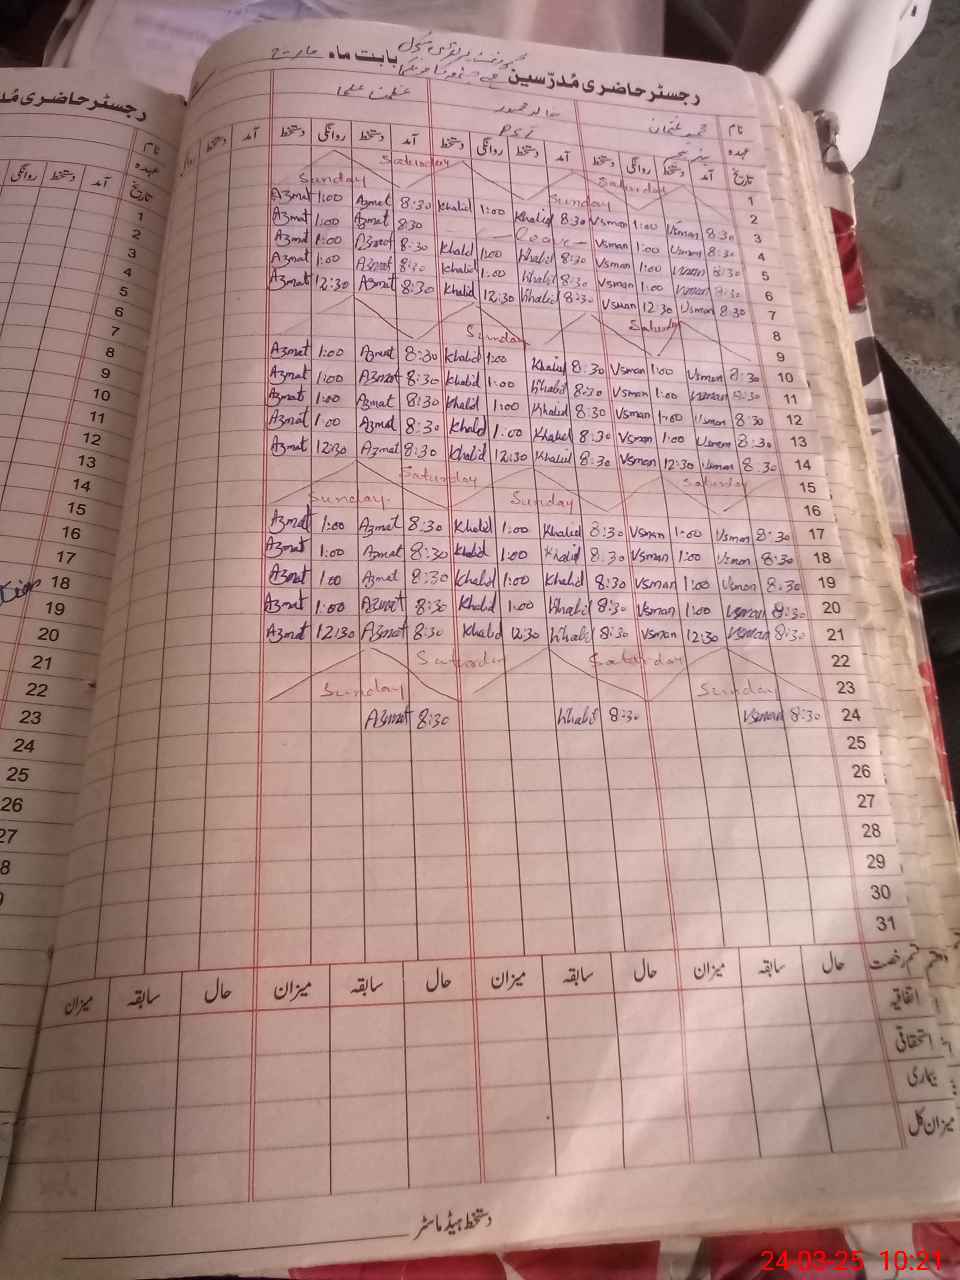 رجسٹر حاضری مُدرّسین بابت ماہ
رجسٹر حاضری مُد
نام محمد عثمان خالد محمود عظمت علی
عہدہ PST
تاریخ آمد دستخط روانگی دستخط آمد دستخط روانگی دستخط آمد دستخط روانگی دستخط آمد دستخط
نام
عہدہ
تاریخ آمد دستخط روانگی
Saturday Saturday 1
Sunday Sunday 2
Azmat 1:00 Azmat 8:30 Khalid 1:00 Khalid 8:30 Vsman 1:00 Vsman 8:30 3
Azmat 1:00 Azmat 8:30 Vsman 1:00 Vsman 8:30 4
Azmat 1:00 Azmat 8:30 Khalid 1:00 Khalid 8:30 Vsman 1:00 Vsman 8:30 5
Azmat 1:00 Azmat 8:30 Khalid 1:00 Khalid 8:30 Vsman 1:00 Vsman 8:30 6
Azmat 12:30 Azmat 8:30 Khalid 12:30 Khalid 8:30 Vsman 12:30 Vsman 8:30 7
Saturday 8
Sunday 9
Azmat 1:00 Azmat 8:30 Khalid 1:00 Khalid 8:30 Vsman 1:00 Vsman 8:30 10
Azmat 1:00 Azmat 8:30 Khalid 1:00 Khalid 8:30 Vsman 1:00 Vsman 8:30 11
Azmat 1:00 Azmat 8:30 Khalid 1:00 Khalid 8:30 Vsman 1:00 Vsman 8:30 12
Azmat 1:00 Azmat 8:30 Khalid 1:00 Khalid 8:30 Vsman 1:00 Vsman 8:30 13
Azmat 12:30 Azmat 8:30 Khalid 12:30 Khalid 8:30 Vsman 12:30 Vsman 8:30 14
Saturday Saturday 15
Sunday Sunday 16
Azmat 1:00 Azmat 8:30 Khalid 1:00 Khalid 8:30 Vsman 1:00 Vsman 8:30 17
Azmat 1:00 Azmat 8:30 Khalid 1:00 Khalid 8:30 Vsman 1:00 Vsman 8:30 18
Azmat 1:00 Azmat 8:30 Khalid 1:00 Khalid 8:30 Vsman 1:00 Vsman 8:30 19
Azmat 1:00 Azmat 8:30 Khalid 1:00 Khalid 8:30 Vsman 1:00 Vsman 8:30 20
Azmat 12:30 Azmat 8:30 Khalid 12:30 Khalid 8:30 Vsman 12:30 Vsman 8:30 21
Saturday Saturday 22
Sunday Sunday 23
Azmat 8:30 Khalid 8:30 Vsman 8:30 24
25
26
27
28
29
30
31
1
2
3
4
5
6
7
8
9
10
11
12
13
14
15
16
17
18
19
20
21
22
23
24
25
26
27
8
9
قسم رخصت حال سابقہ میزان حال سابقہ میزان حال سابقہ میزان حال سابقہ میزان
اتفاقیہ
استحقاقی
بیماری
میزان کل
دستخط ہیڈ ماسٹر
24-03-25 10:21